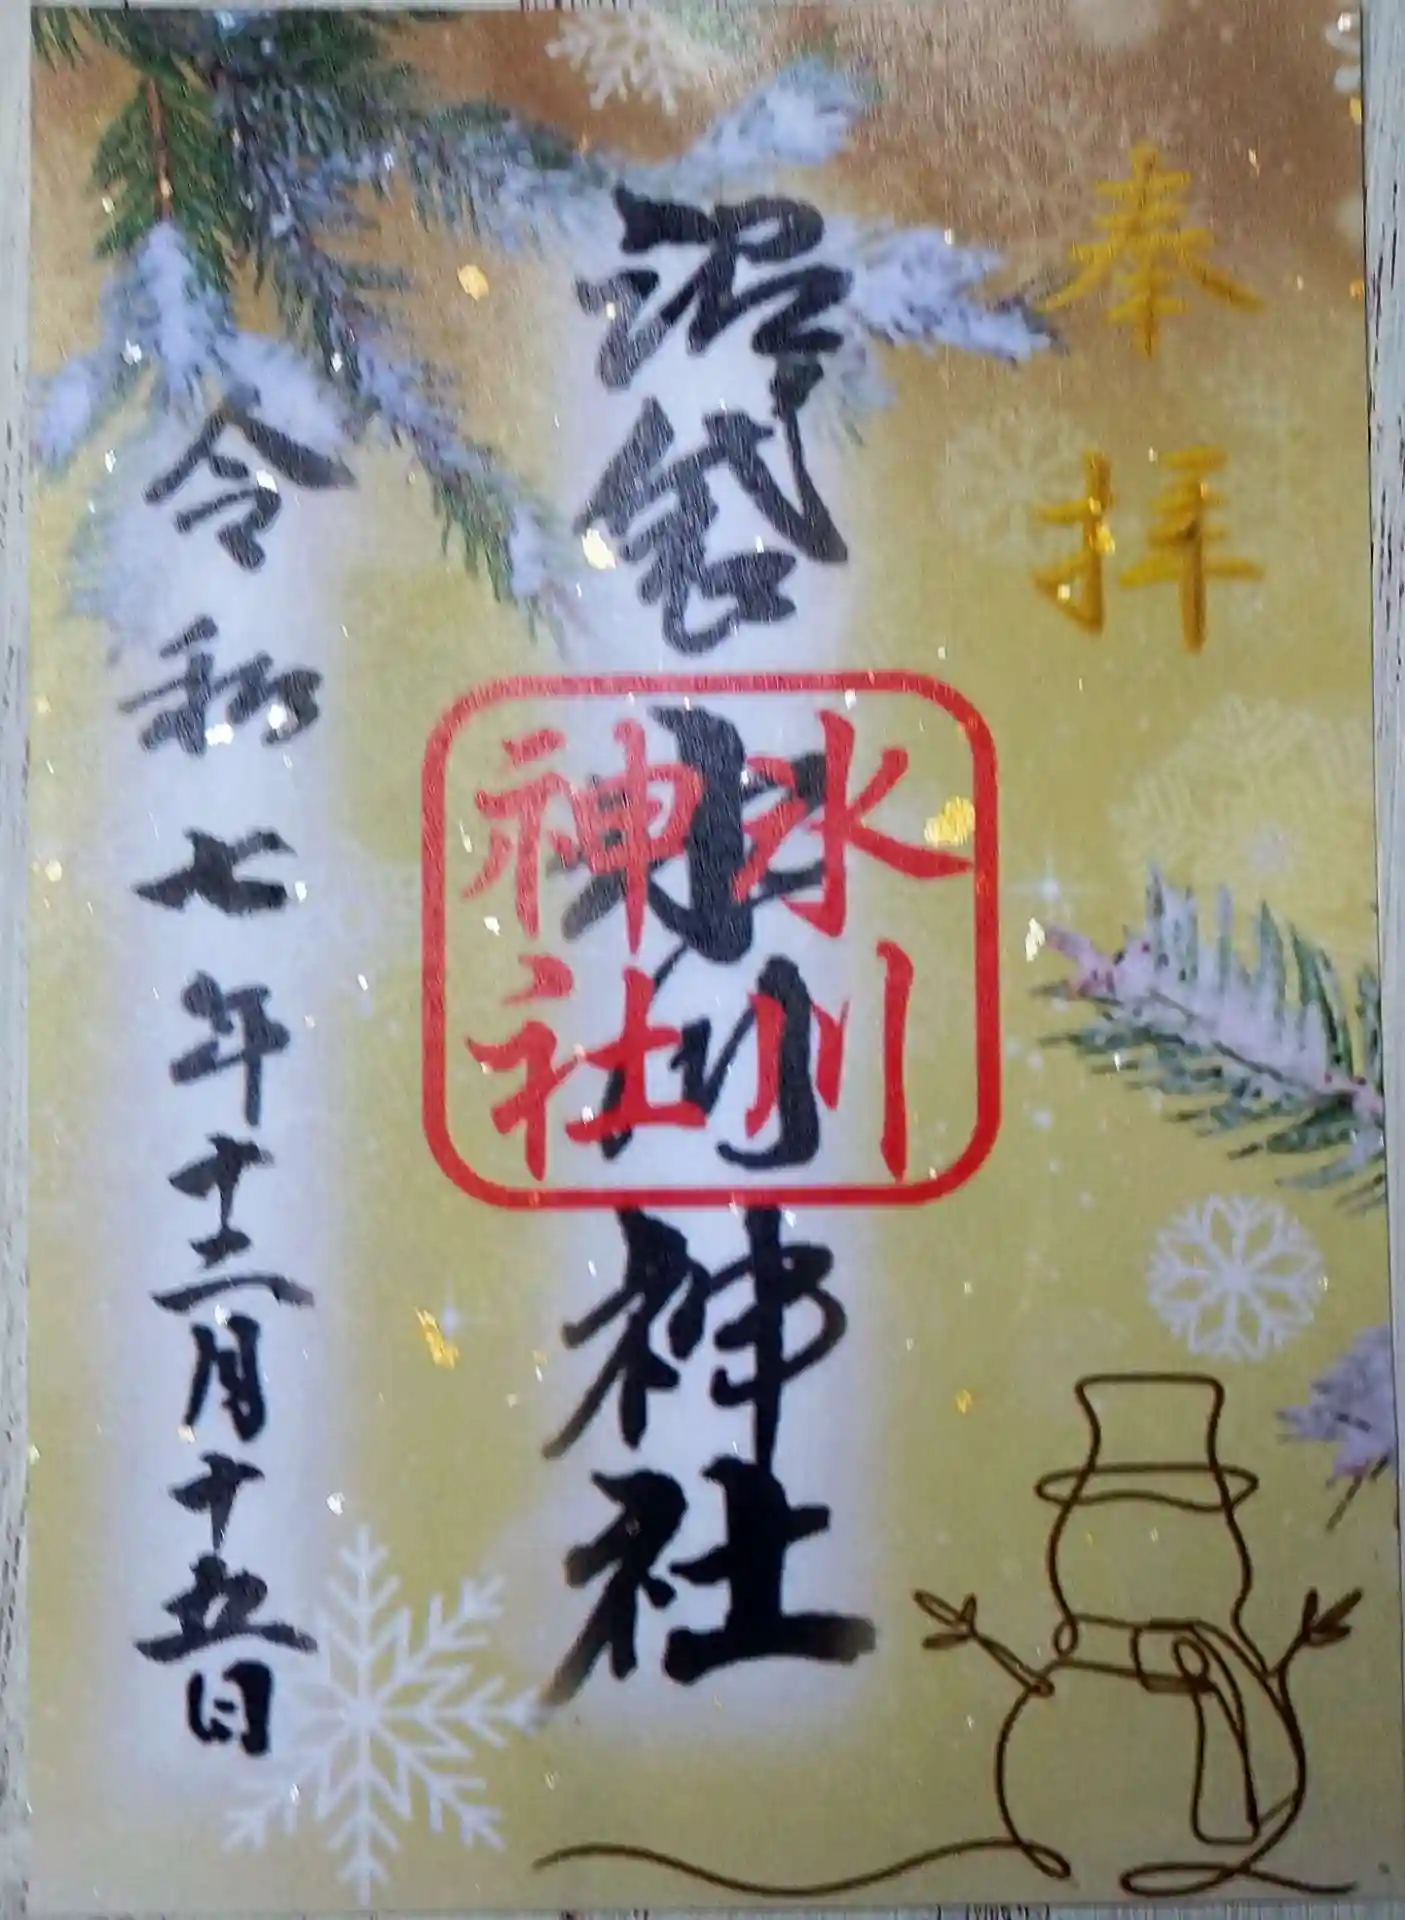 奉拝
沼袋氷川神社
氷川
神社
令和七年十二月十五日